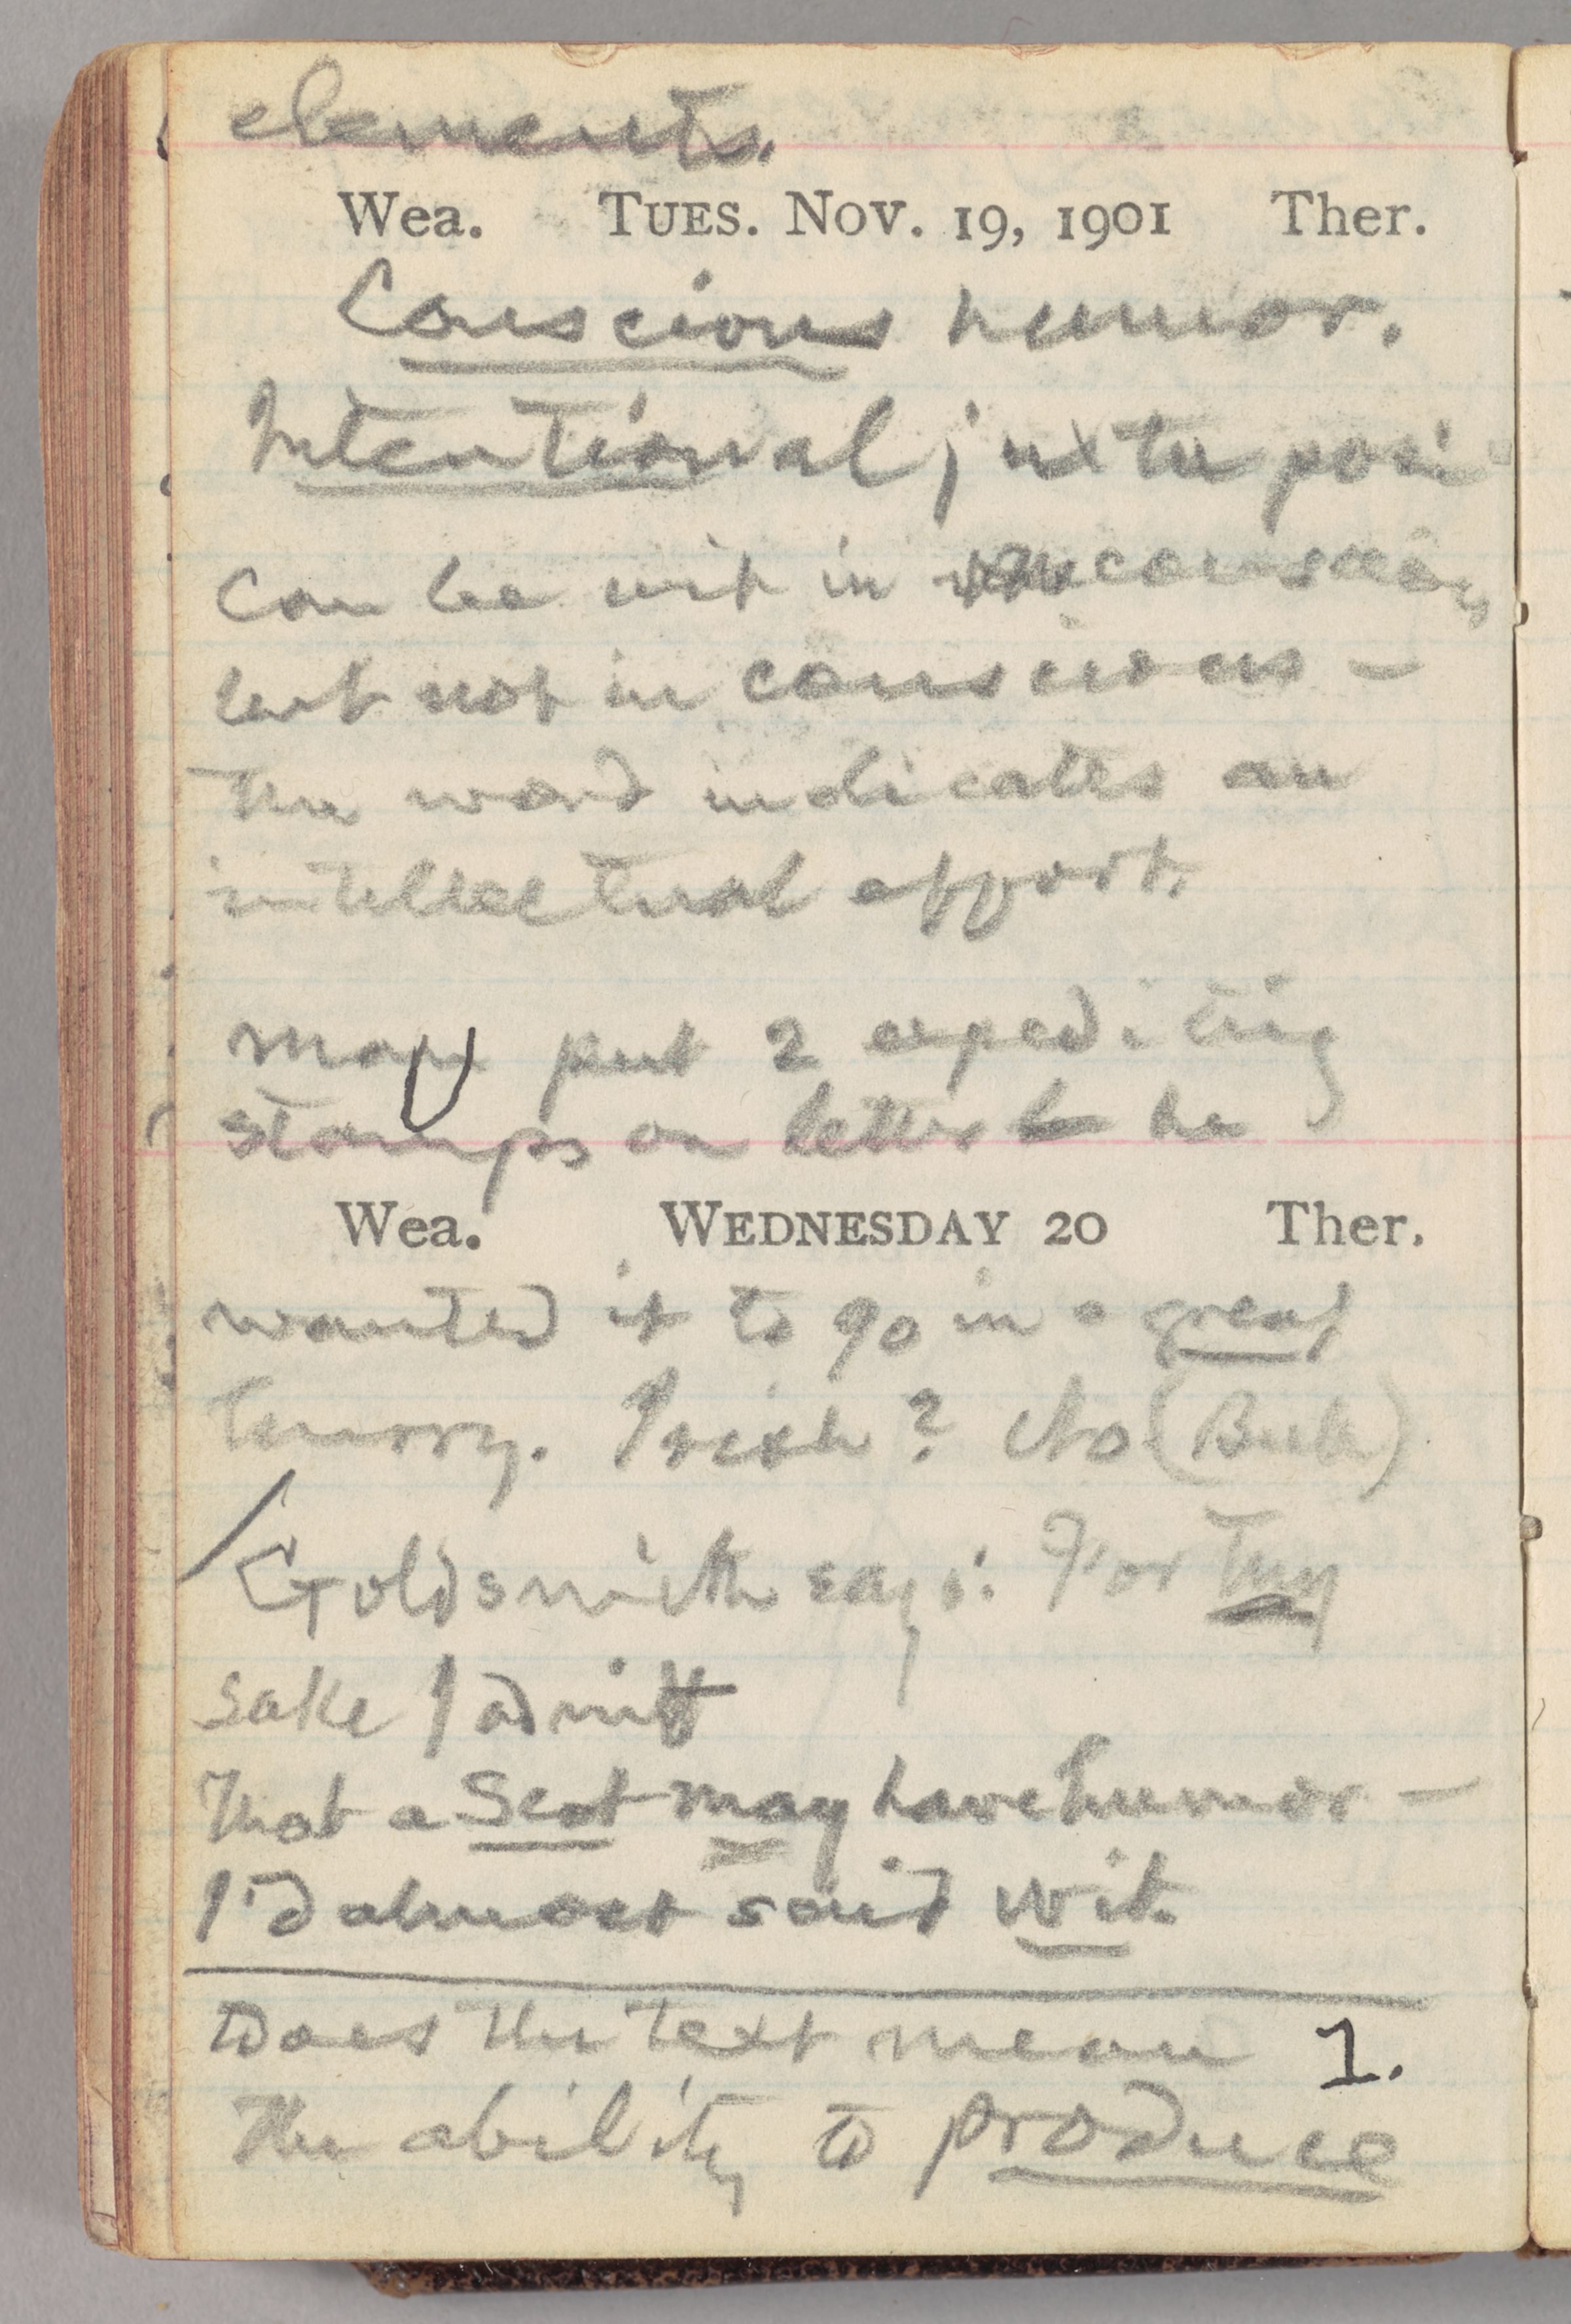 elements.
Wea. TUES. NOV. 19, 1901 Ther.
Conscious humor.
Intentional juxtaposi
Can be wit in unconscious
but not in conscious —
The word indicates an
intellectual effort.
man put 2 expediting
stamps on letter he
Wea. WEDNESDAY 20 Ther.
wanted it to go in a great
hurry. Irish? No (Bull)
Goldsmith says: For thy
sake I admit
That a Scot may have humor —
I'd almost said wit.
Does the text mean 1.
The ability to produce